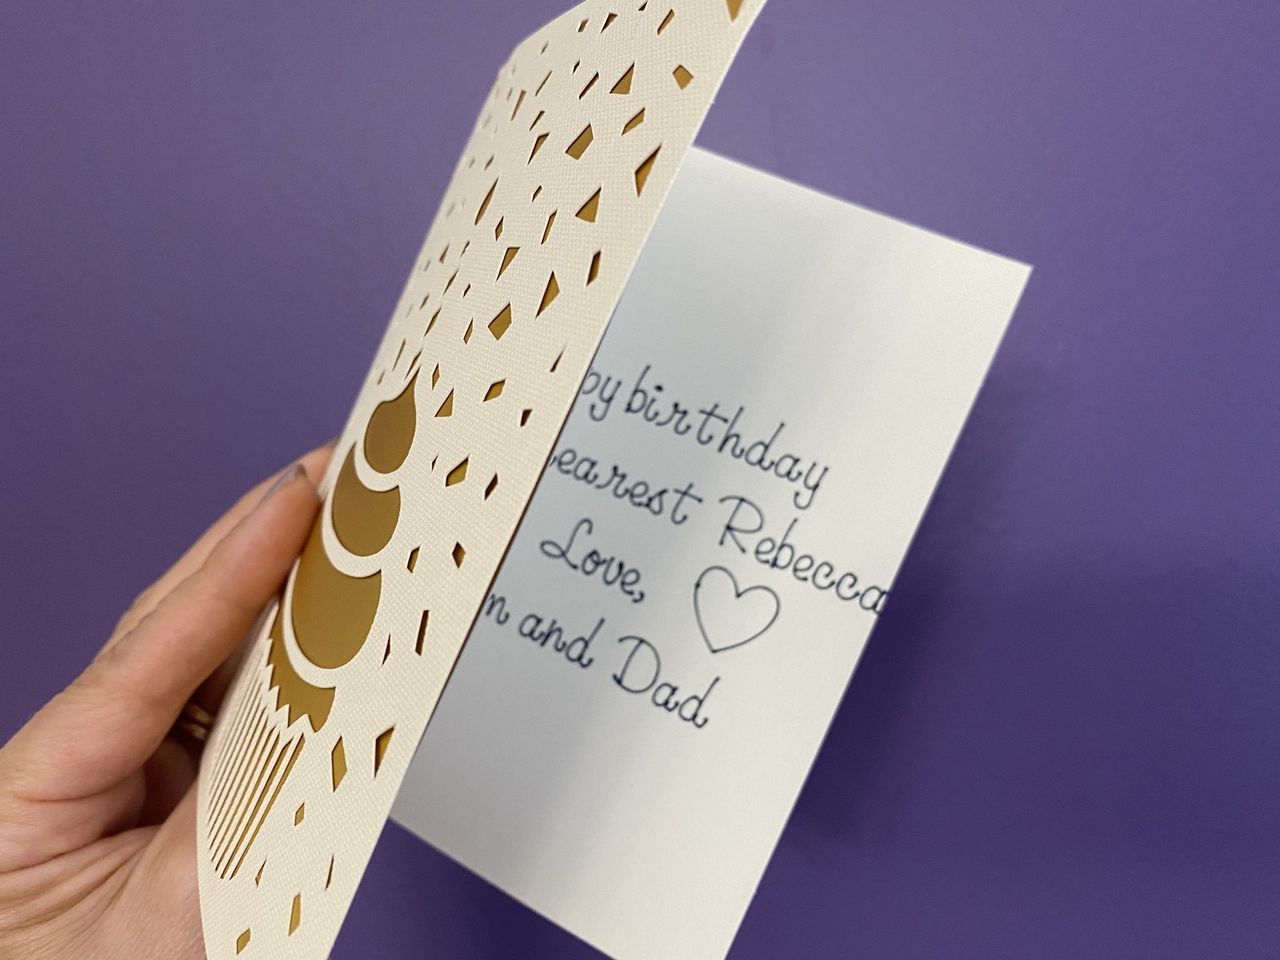 py birthday
earest Rebecca
Love,
n and Dad